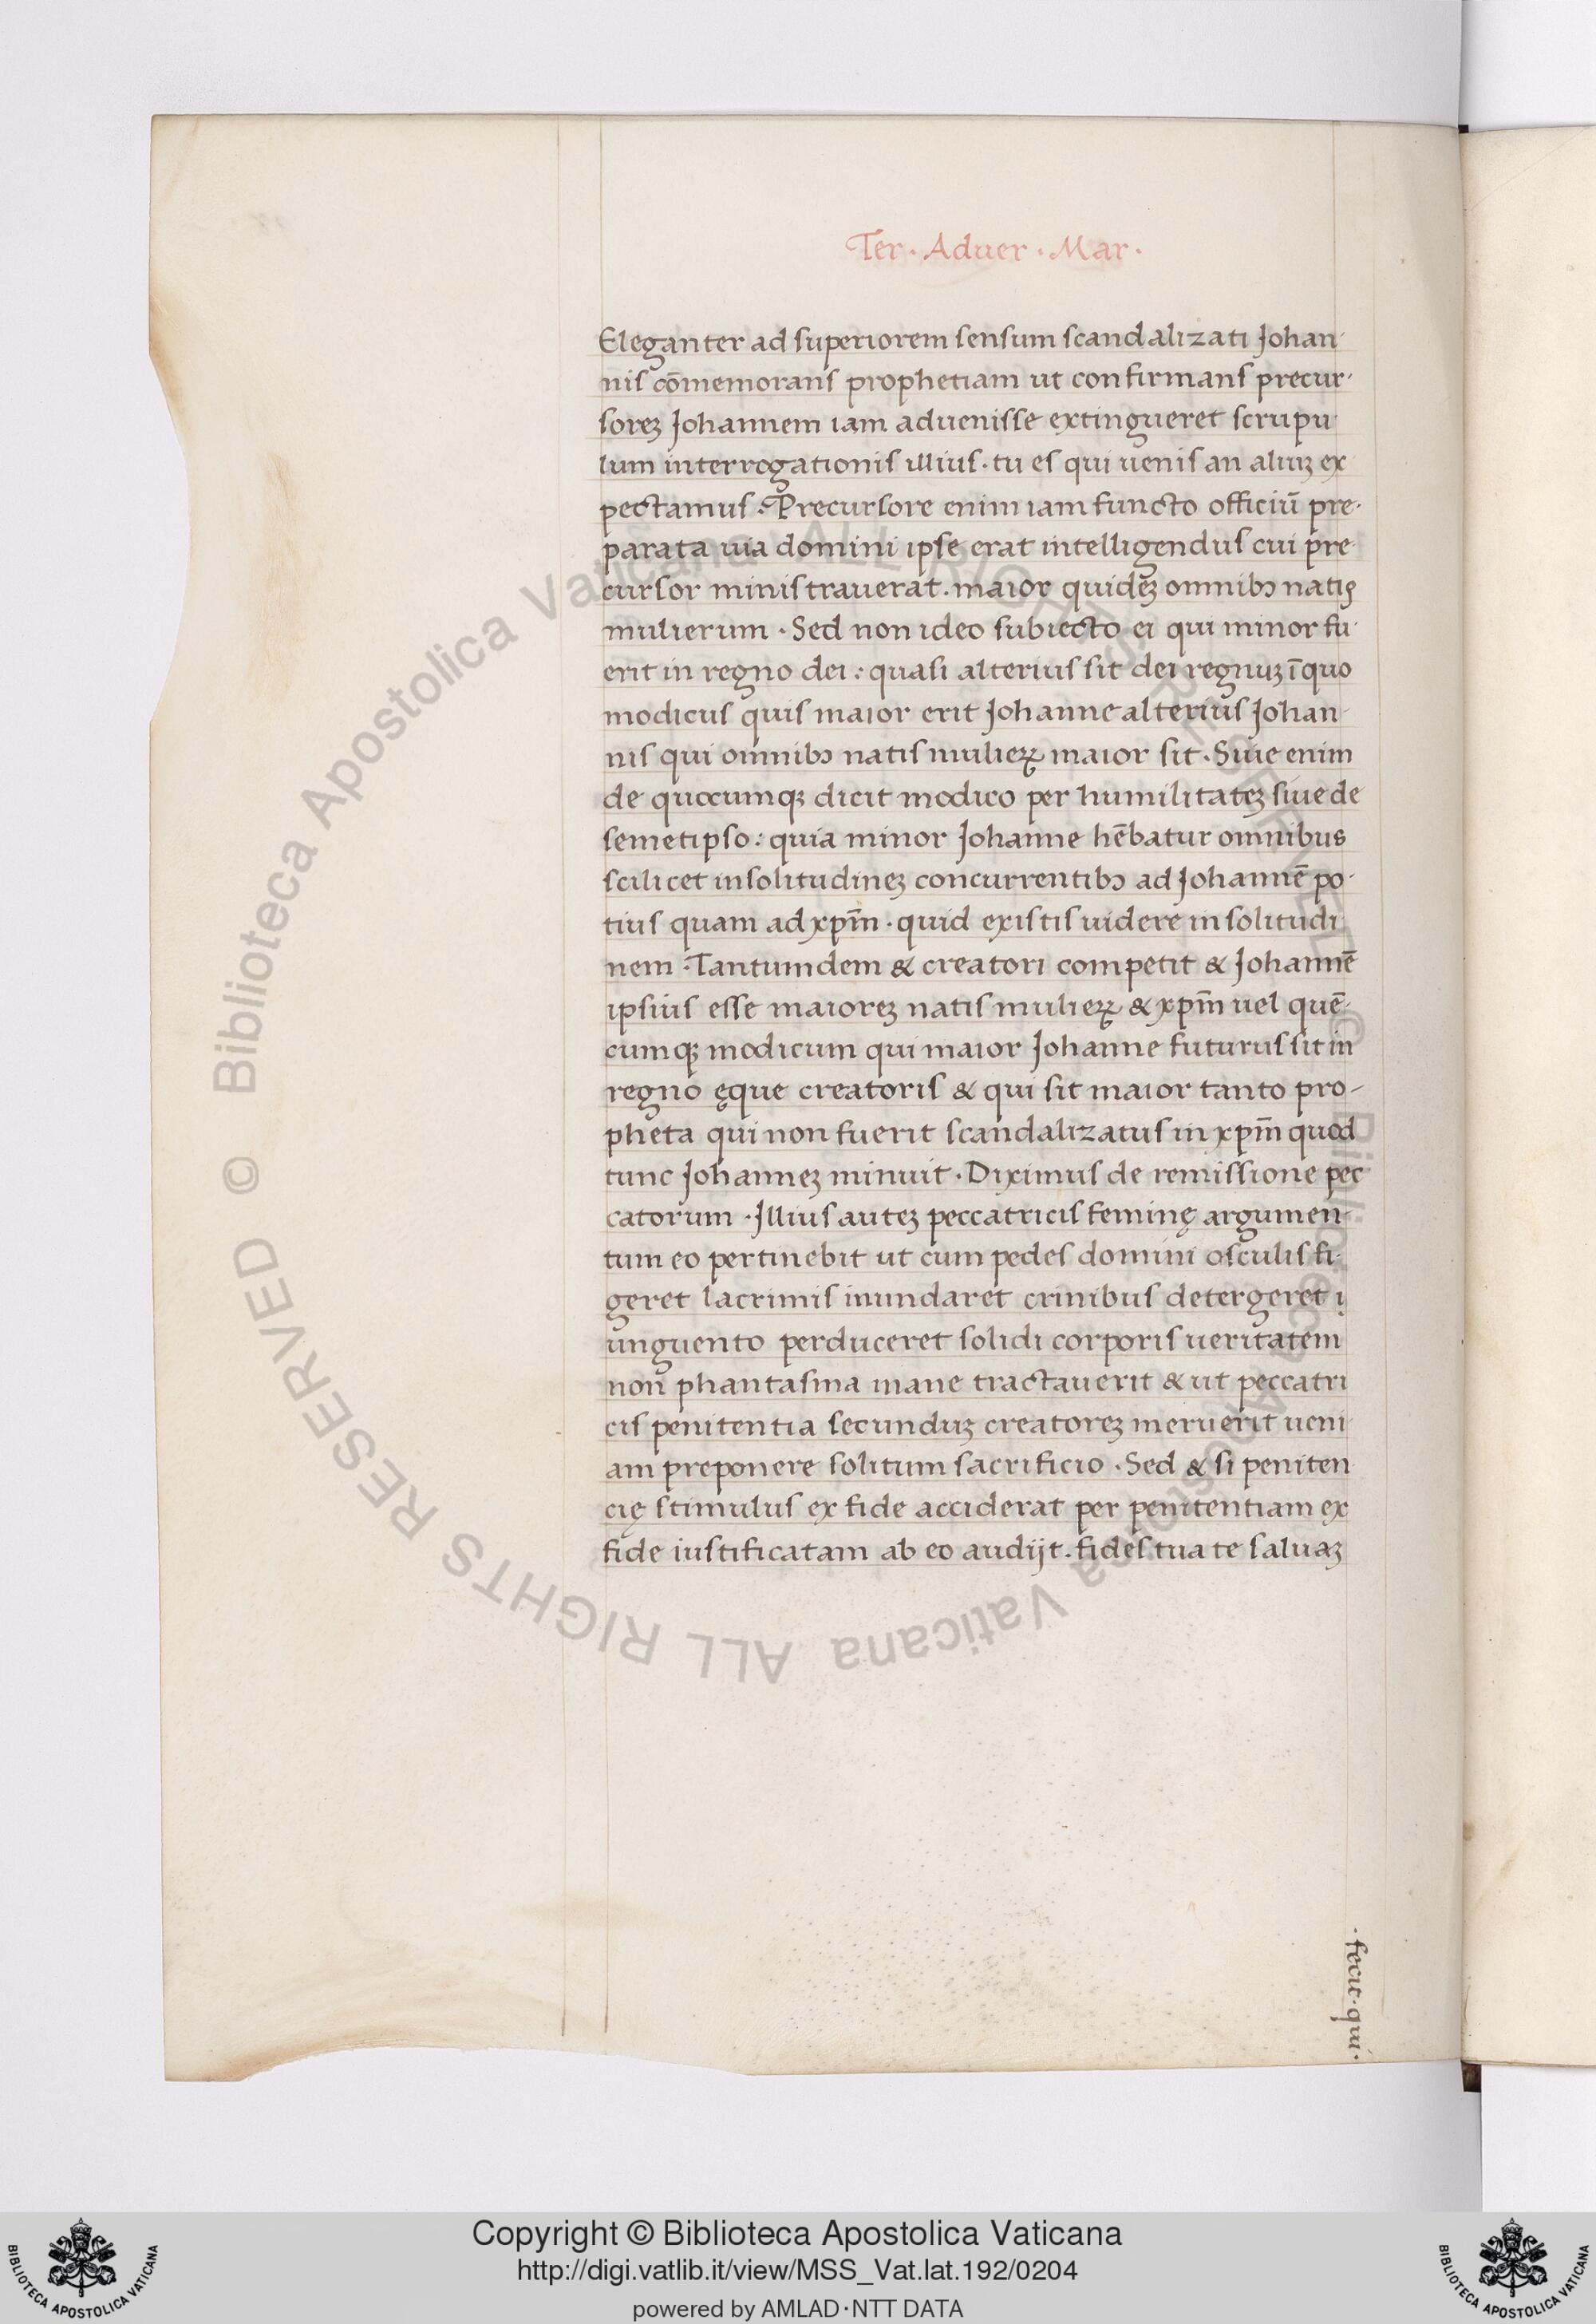 Ter · Aduer · Mar ·
Eleganter ad superiorem sensum scandalizati Johan-
nis cōmemorans prophetiam ut confirmans precur-
soreꝫ Johannem iam aduenisse extingueret scrupu
lum interrogationis illius · tu es qui uenis an aliuꝫ ex
pectamus · Precursore enim iam functo officiū pre-
parata uia domini ipse erat intelligendus cui pre
cursor ministrauerat · maior quideꝫ omnibꝰ natis
mulierum · Sed non ideo subiecto ei qui minor fu-
erit in regno dei : quasi alterius sit dei regnuꝫ ī quo
modicus quis maior erit Johanne alterius Johan-
nis qui omnibꝰ natis mulieꝝ maior sit · Siue enim
de quocumqꝫ dicit modico per humilitateꝫ siue de
semetipso : quia minor Johanne hēbatur omnibus
scilicet in solitudineꝫ concurrentibꝰ ad Johannē po-
tius quam ad xpm̄ · quid existis uidere in solitudi
nem · Tantumdem & creatori competit & Johannē
ipsius esse maioreꝫ natis mulieꝝ & xpm̄ uel quē-
cumqꝫ modicum qui maior Johanne futurus sit in
regno ęque creatoris & qui sit maior tanto pro-
pheta qui non fuerit scandalizatus in xpm̄ quod
tunc Johanneꝫ minuit · Diximus de remissione pec
catorum · Illius auteꝫ peccatricis feminę argumen-
tum eo pertinebit ut cum pedes domini osculis fi-
geret lacrimis inundaret crinibus detergeret
unguento perduceret solidi corporis ueritatem
non phantasma inane tractauerit & ut peccatri
cis penitentia secunduꝫ creatoreꝫ meruerit ueni-
am preponere solitum sacrificio · Sed & si peniten
cię stimulus ex fide acciderat per penitentiam ex
fide iustificatam ab eo audijt · fides tua te saluaꝫ
· fecit · qui ·
© Biblioteca Apostolica Vaticana ALL RIGHTS RESERVED © Biblioteca Apostolica Vaticana ALL RIGHTS RESERVED
Copyright © Biblioteca Apostolica Vaticana
http://digi.vatlib.it/view/MSS_Vat.lat.192/0204
powered by AMLAD·NTT DATA
BIBLIOTECA APOSTOLICA VATICANA
BIBLIOTECA APOSTOLICA VATICANA